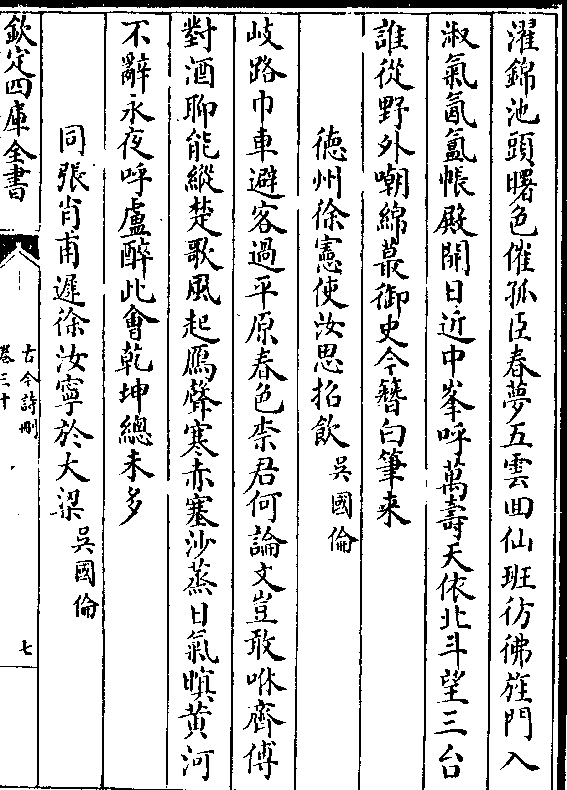 濯錦池頭曙色催孤臣春夢五雲回仙班彷彿旌門入
淑氣氤氳帳殿開日近中峯呼萬壽天依北斗望三台
誰從野外嘲綿蕞御史今簪白筆来
徳州徐憲使汝思招飲 吳國倫
岐路巾車避客過平原春色柰君何論文豈敢咻齊傅
對酒聊能縱楚歌風起鴈聲寒赤塞沙蒸日氣暝黄河
不辭永夜呼盧醉此會乾坤總未多
同張肖甫遲徐汝寧於大梁 吳國倫
欽定四庫全書
古今詩刪
卷三十
七